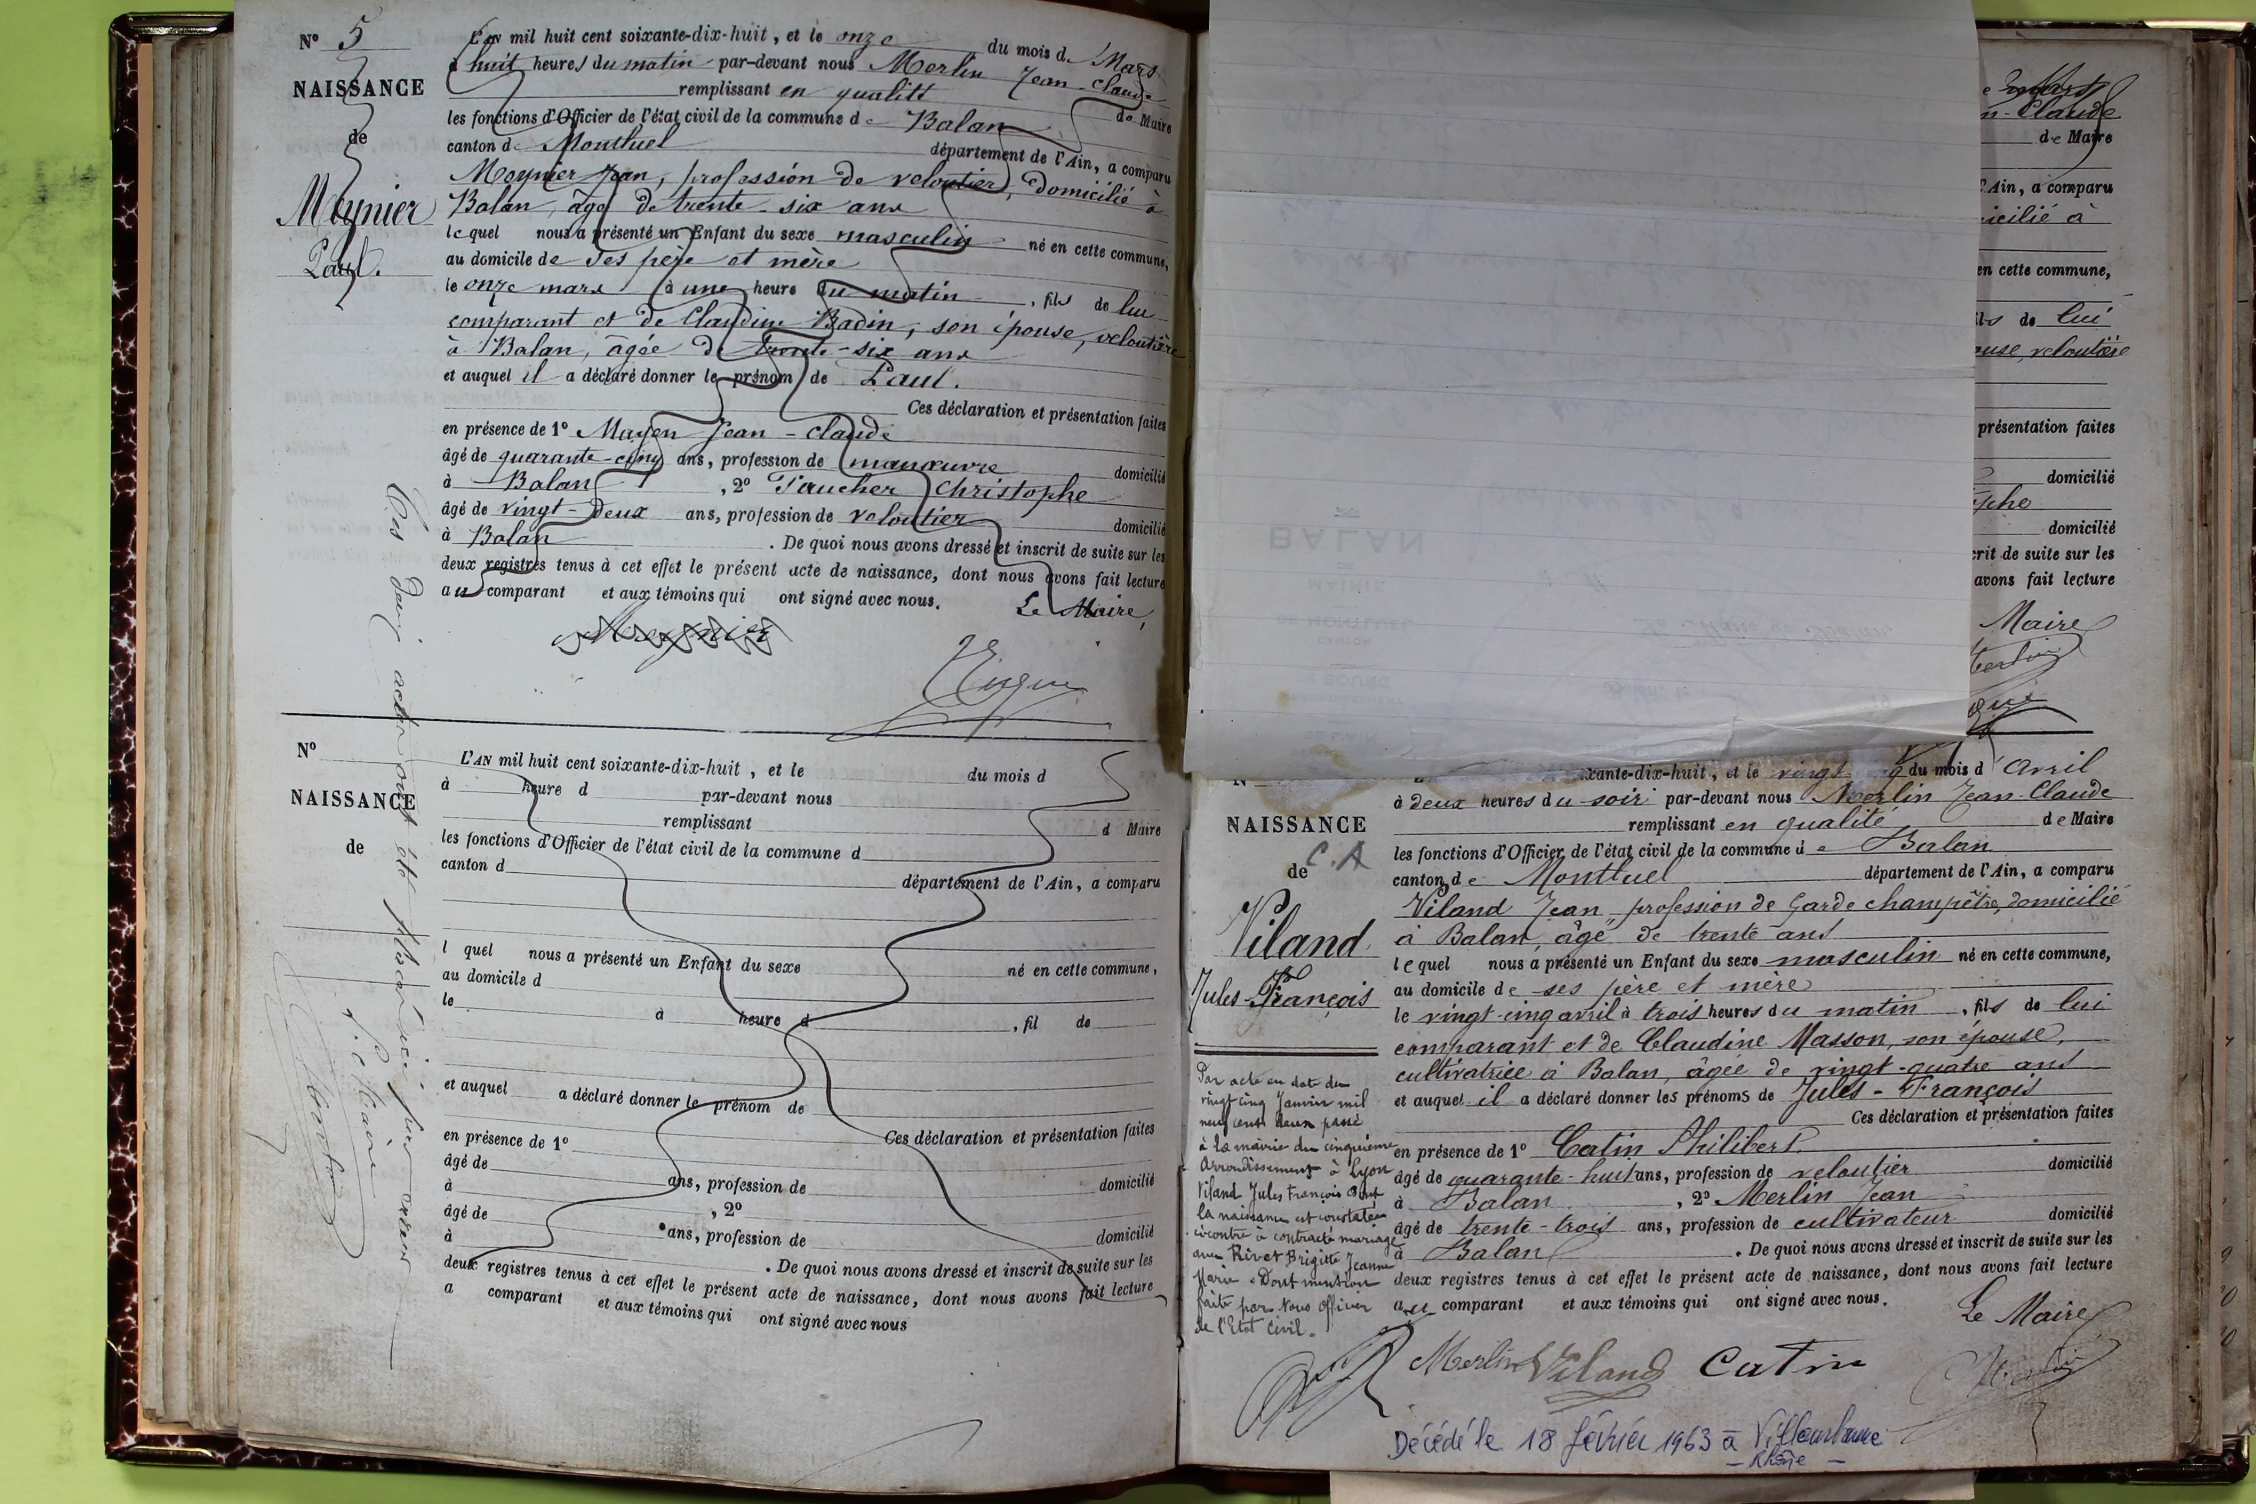 N° 5
NAISSANCE
de
Meynier
Paul.
L'an mil huit cent soixante-dix-huit, et le onze du mois de Mars
à huit heures du matin par-devant nous Merlin Jean-Claude
remplissant en qualité de Maire
les fonctions d'Officier de l'état civil de la commune de Balan
canton de Montluel département de l'Ain, a comparu
Meynier Jean, profession de veloutier, domicilié à
Balan, âgé de trente-six ans
lequel nous a présenté un Enfant du sexe masculin né en cette commune,
au domicile de ses père et mère
le onze mars à une heure du matin, fils de lui
comparant et de Claudine Badin, son épouse, veloutière
à Balan, âgée de trente-six ans
et auquel il a déclaré donner le prénom de Paul.
Ces déclaration et présentation faites
en présence de 1° Mayen Jean-Claude
âgé de quarante-cinq ans, profession de manœuvre domicilié
à Balan, 2° Faucher Christophe
âgé de vingt-deux ans, profession de veloutier domicilié
à Balan. De quoi nous avons dressé et inscrit de suite sur les
deux registres tenus à cet effet le présent acte de naissance, dont nous avons fait lecture
au comparant et aux témoins qui ont signé avec nous.
Le Maire,
Meynier
Ces deux actes ont été par erreur
Le Maire
N°
NAISSANCE
de
L'AN mil huit cent soixante-dix-huit, et le du mois d
à heure d par-devant nous
remplissant d Maire
les fonctions d'Officier de l'état civil de la commune d
canton d département de l'Ain, a comparu
l quel nous a présenté un Enfant du sexe né en cette commune,
au domicile d
le à heure d, fil de
et auquel a déclaré donner le prénom de
Ces déclaration et présentation faites
en présence de 1°
âgé de ans, profession de domicilié
à, 2°
âgé de ans, profession de domicilié
à. De quoi nous avons dressé et inscrit de suite sur les
deux registres tenus à cet effet le présent acte de naissance, dont nous avons fait lecture
a comparant et aux témoins qui ont signé avec nous
BALAN
e Mars
n-Claude
de Maire
l'Ain, a comparu
icilié à
en cette commune,
ils de lui
ouse, veloutière
présentation faites
domicilié
ophe
domicilié
crit de suite sur les
avons fait lecture
Maire
N
NAISSANCE
de C.A
Viland
Jules-François
xante-dix-huit, et le vingt du mois d'Avril
à deux heures du soir par-devant nous Merlin Jean-Claude
remplissant en qualité de Maire
les fonctions d'Officier de l'état civil de la commune de Balan
canton de Montluel département de l'Ain, a comparu
Viland Jean, profession de Garde champêtre, domicilié
à Balan, âgé de trente ans
lequel nous a présenté un Enfant du sexe masculin né en cette commune,
au domicile de ses père et mère
le vingt-cinq avril à trois heures du matin, fils de lui
comparant et de Claudine Masson, son épouse,
cultivatrice à Balan, âgée de vingt-quatre ans
et auquel il a déclaré donner les prénoms de Jules-François
Ces déclaration et présentation faites
en présence de 1° Catin Philibert
âgé de quarante-huit ans, profession de veloutier domicilié
à Balan, 2° Merlin Jean
âgé de trente-trois ans, profession de cultivateur domicilié
à Balan. De quoi nous avons dressé et inscrit de suite sur les
deux registres tenus à cet effet le présent acte de naissance, dont nous avons fait lecture
au comparant et aux témoins qui ont signé avec nous.
Le Maire
Merlin Viland Catin
Par acte en date du
vingt cinq Janvier mil
neuf cent deux passé
à la mairie du cinquième
Arrondissement à Lyon
Viland Jules François dont
la naissance est constatée
ci contre a contracté mariage
avec Rivet Brigitte Jeanne
Marie. Dont mention
faite par Nous Officier
de l'Etat Civil.
Décédé le 18 février 1963 à Villeurbanne
- Rhône -